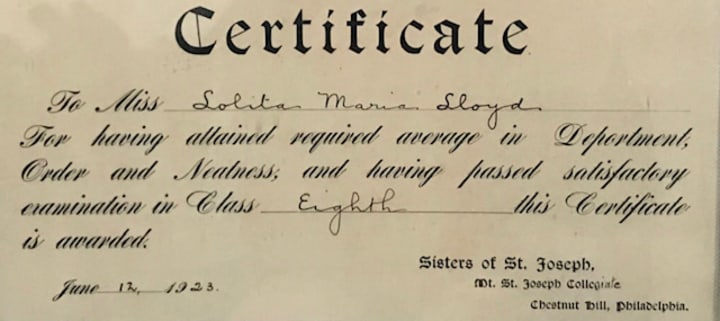 Certificate
To Miss Lolita Maria Lloyd
For having attained required average in Deportment,
Order and Neatness; and having passed satisfactory
examination in Class Eighth this Certificate
is awarded.
Sisters of St. Joseph,
June 12, 1923.
Mt. St. Joseph Collegiate
Chestnut Hill, Philadelphia.